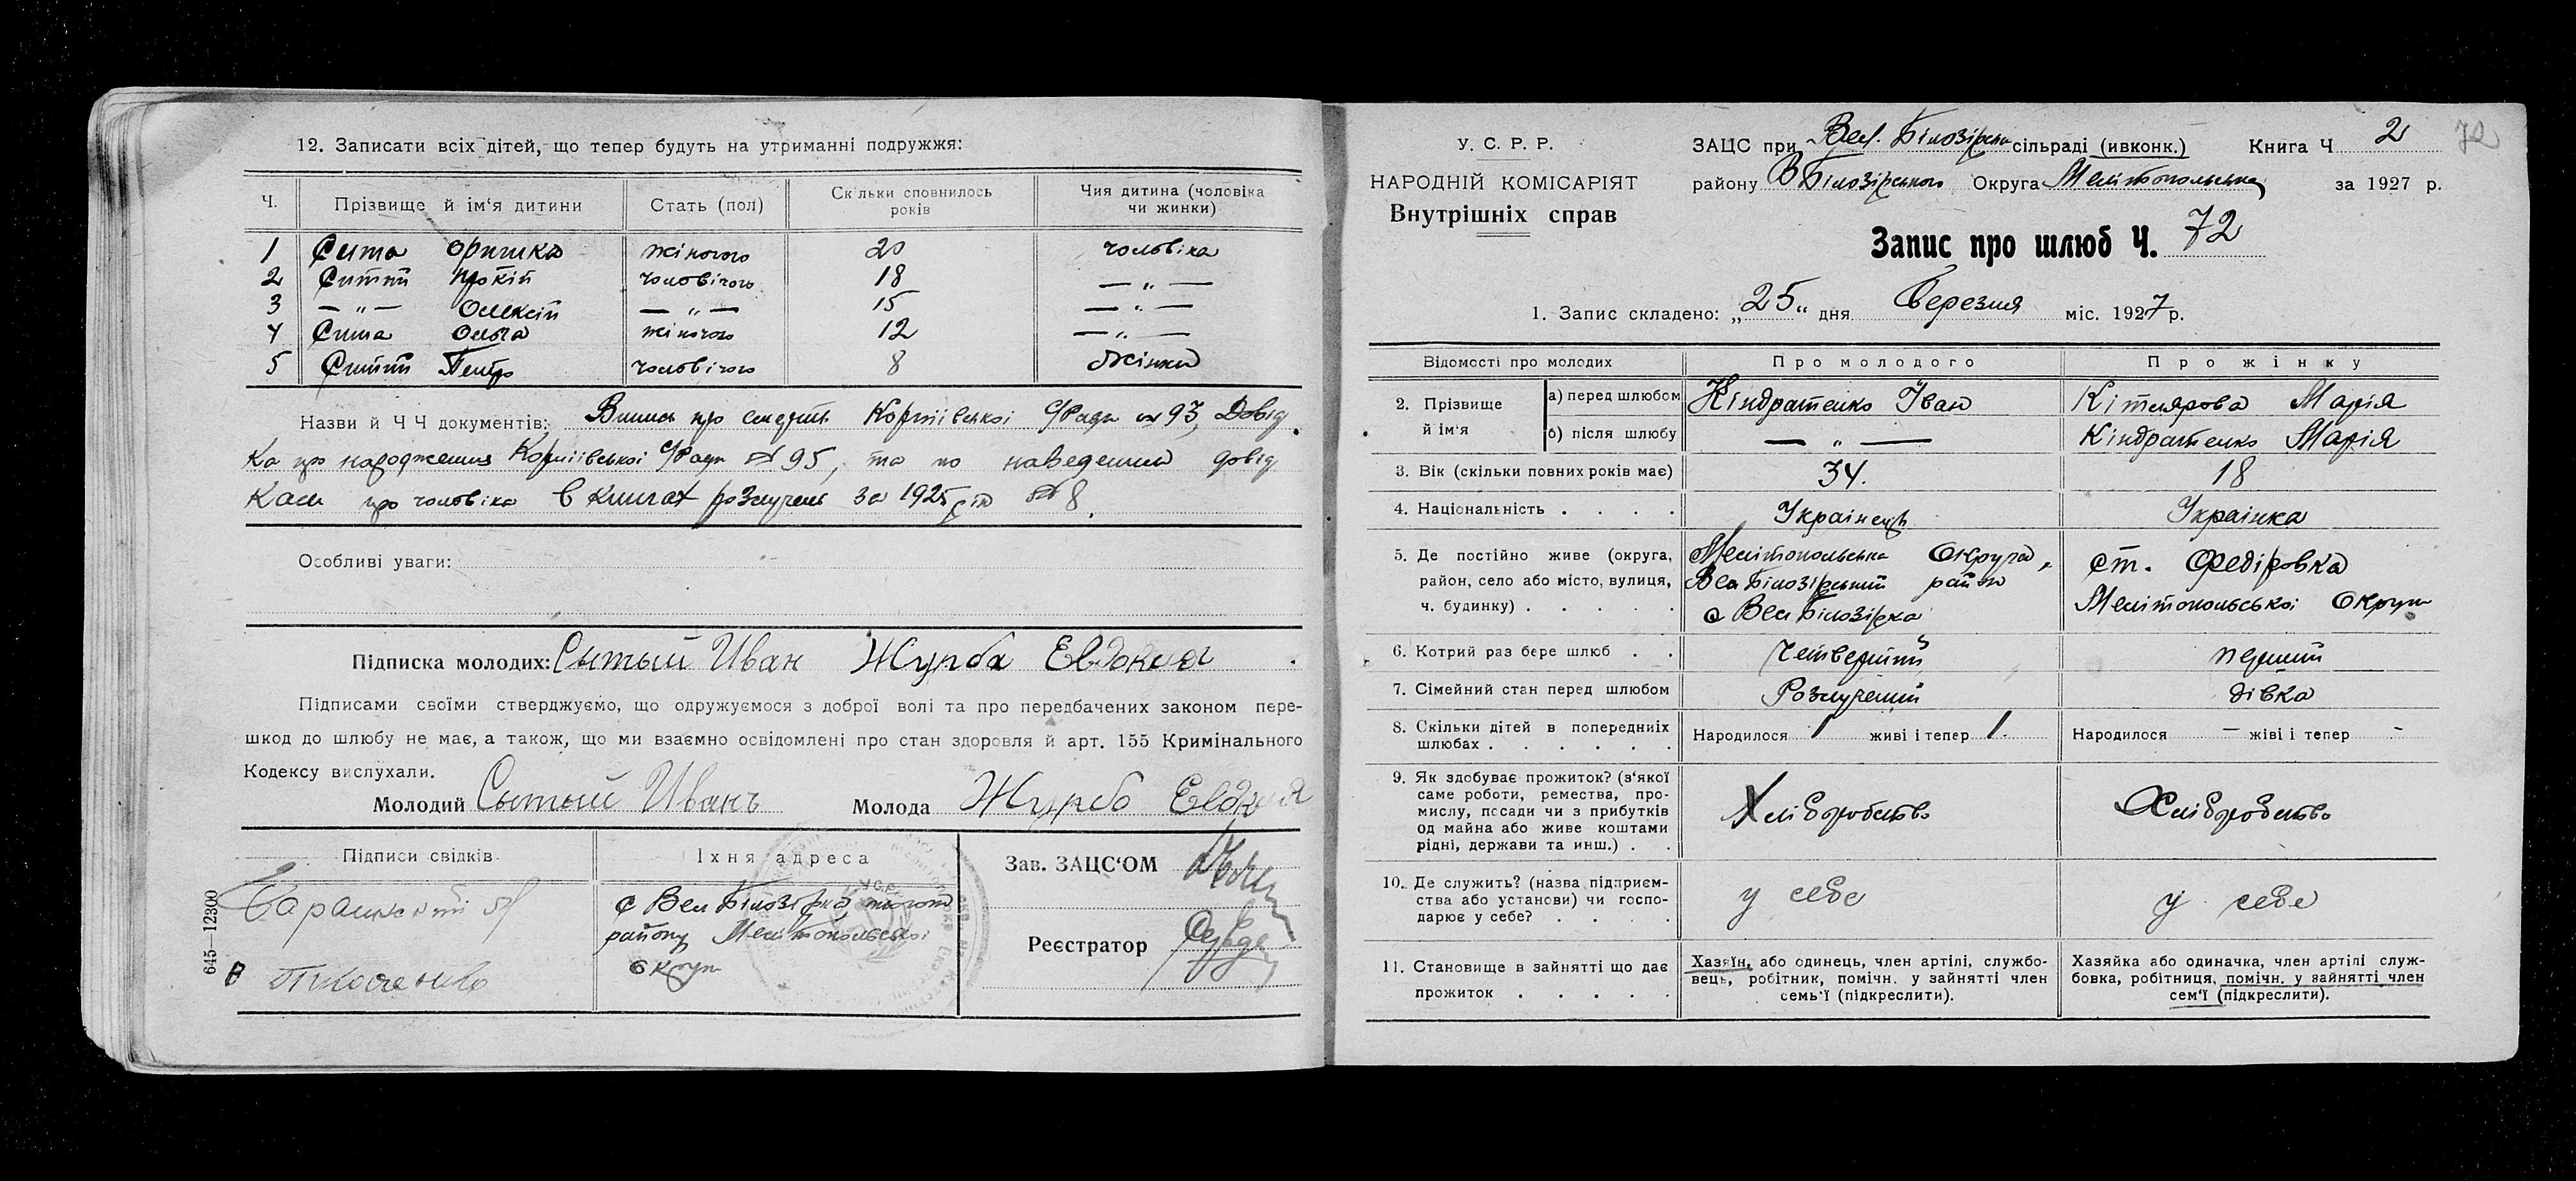 12. Записати всіх дітей, що тепер будуть на утриманні подружжя:
Ч. Прізвище й ім'я дитини Стать (пол) Скільки сповнилось років Чия дитина (чоловіка чи жинки)
1 Сита Оришка жіночого 20 чоловіка
2 Ситий Прокій чоловічого 18 — „ —
3 — „ — Олексій — „ — 15 — „ —
4 Сита Ольга жіночого 12 — „ —
5 Ситий Петро чоловічого 8 Жінки
Назви й Ч Ч документів: Випись про смерть Корніївської С/Ради № 93, Довід
ка про народження Корніївської С/Ради № 95, та по наведеним довід
кам про чоловіка в книгах розлучень за 1925 рік № 8.
Особливі уваги:
Підписка молодих: Сытый Иван Журба Евдокия
Підписами своїми стверджуємо, що одружуємося з доброї волі та про передбачених законом пере-
шкод до шлюбу не має, а також, що ми взаємно освідомлені про стан здоровля й арт. 155 Кримінального
Кодексу вислухали.
Молодий Сытый Иванъ Молода Журба Евдокия
Підписи свідків Їхня адреса
с Вел Білозірка того ж
району Мелітопольської
Округи
Зав. ЗАЦС'ОМ
Реєстратор
645—12300
У. С. Р. Р.
НАРОДНІЙ КОМІСАРІЯТ
Внутрішніх справ
ЗАЦС при Вел. Білозірська сільраді (ивконк.) Книга Ч 2 72
району В Білозірського Округа Мелітопольська за 1927 р.
Запис про шлюб Ч. 72
1. Запис складено: „25" дня Березня міс. 1927 р.
Відомості про молодих Про молодого Про жінку
2. Прізвище й ім'я а) перед шлюбом Кіндратенко Іван Кітлярова Марія
б) після шлюбу — „ — Кіндратенко Марія
3. Вік (скільки повних років має) 34. 18
4. Національність . . . . Українець Українка
5. Де постійно живе (округа, район, село або місто, вулиця, ч. будинку) . . . . . Мелітопольська Округа, Вел Білозірський район с Вел Білозірка ст. Федіровка Мелітопольської Округи
6. Котрий раз бере шлюб . . Четвертий перший
7. Сімейний стан перед шлюбом Розлучений дівка
8. Скільки дітей в попередниіх шлюбах . . . . . . Народилося 1 живі і тепер 1. Народилося — жіві і тепер -
9. Як здобуває прожиток? (з'якої саме роботи, ремества, про-мислу, посади чи з прибутків од майна або живе коштами рідні, держави та инш.) . . Хліборобство Хліборобство
10. Де служить? (назва підприєм-ства або установи) чи госпо-дарює у себе? . . . . у себе у себе
11. Становище в зайнятті що дає прожиток . . . . . Хазяїн, або одинець, член артілі, службо-вець, робітник, помічн. у зайнятті член семь'ї (підкреслити). Хазяйка або одиначка, член артілі служ-бовка, робітниця, помічн. у зайнятті член сем'ї (підкреслити).